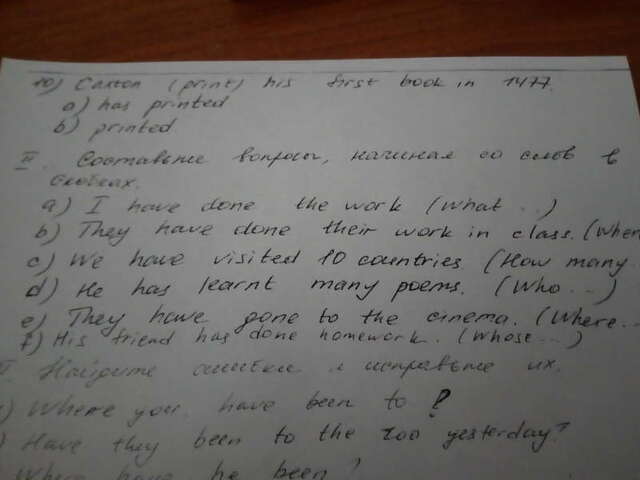 10) Caxton (print) his first book in 1477.
a) has printed
b) printed
II. Составьте вопросы, начиная со слов в
скобках.
a) I have done the work (What...)
b) They have done their work in class. (Wher
c) We have visited 10 countries. (How many
d) He has learnt many poems. (Who...)
e) They have gone to the cinema. (Where...
f) His friend has done homework. (Whose...)
Найдите ошибки и исправьте их.
) Where you have been to ?
) Have they been to the zoo yesterday?
Where have he been?